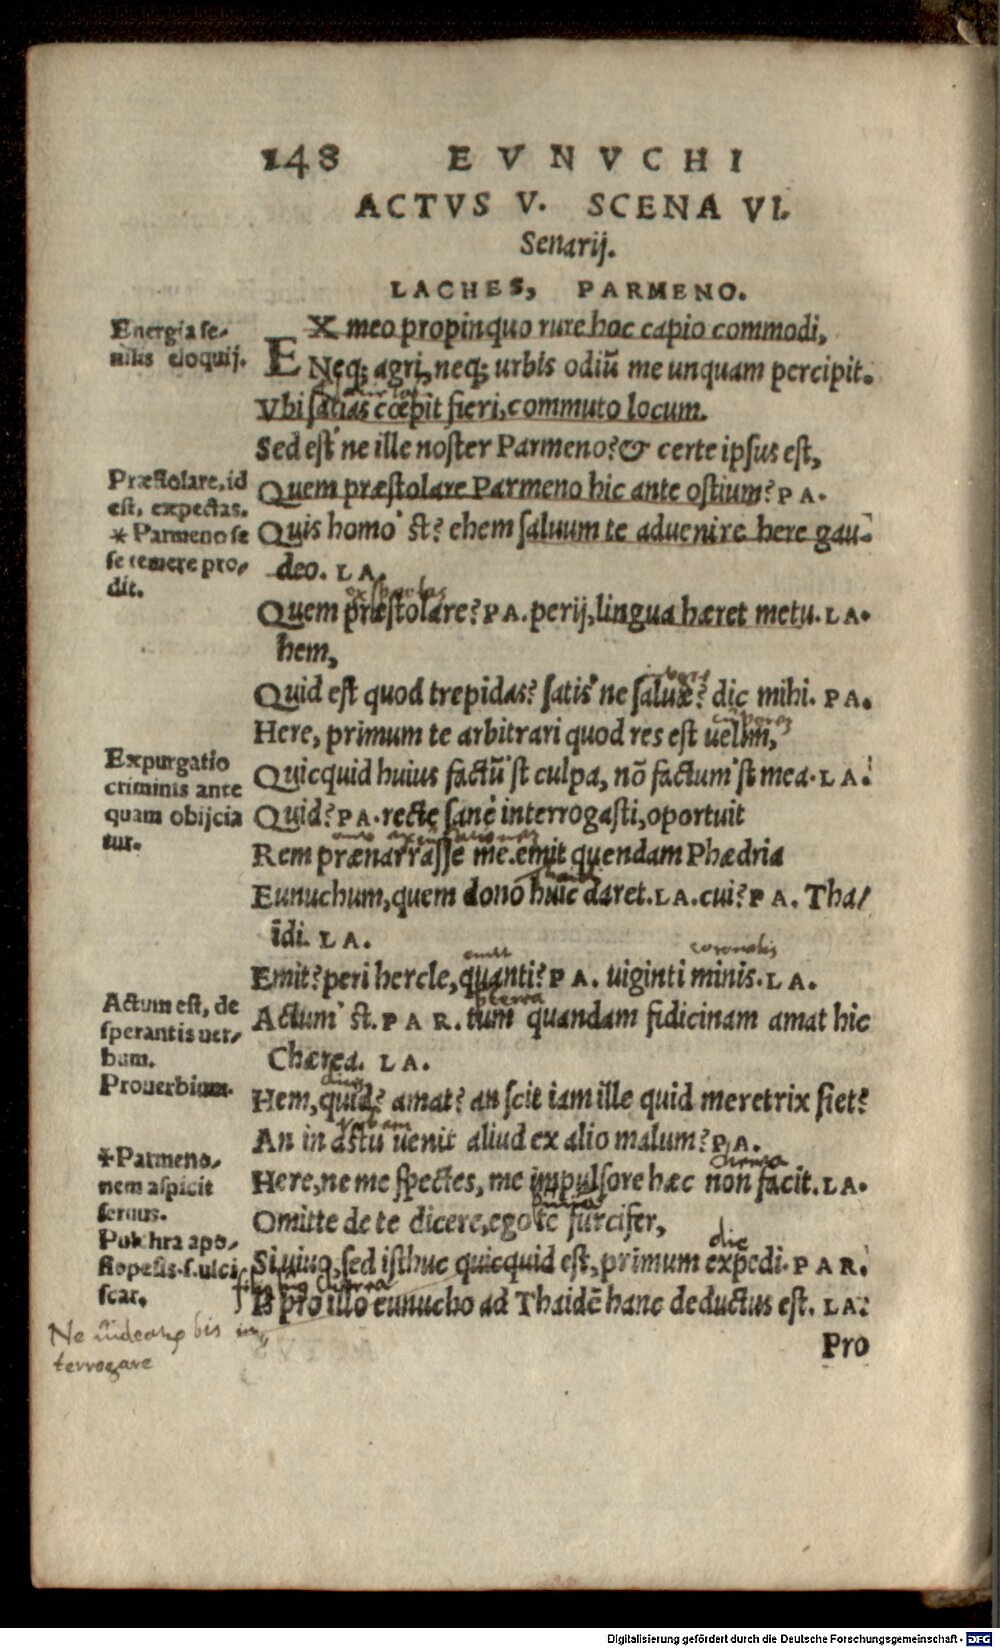 148 EVNVCHI
ACTVS V. SCENA VI.
Senarij.
LACHES, PARMENO.
Energía se-
nilis eloquij.
EX meo propinquo rure hoc capio commodi,
Neq; agri, neq; urbis odiũ me unquam percipit.
Vbi satias cœpit fieri, commuto locum.
Sed est' ne ille noster Parmeno? & certe ipsus est,
Præstolare, id
est, expectas.
* Parmeno se
se temere pro-
dit.
Quem præstolare Parmeno hic ante ostium? PA.
Quis homo' st? ehem saluum te aduenire here gau-
deo. LA.
expectas
Quem præstolare? PA. perij, lingua hæret metu. LA.
hem,
Quid est quod trepidas? satis' ne saluæ? dic mihi. PA.
Here, primum te arbitrari quod res est uelim,
Expurgatio
criminis ante
quam obijcia
tur.
Quicquid huius factũ' st culpa, nõ factum' st mea. LA.
Quid? PA. recte sanè interrogasti, oportuit
Rem prænarrasse me. emit quendam Phædria
Eunuchum, quem dono huic daret. LA. cui? PA. Tha-
idi. LA.
emit
Emit? peri hercle, quanti? PA. uiginti minis. LA.
Actum est, de
sperantis uer-
bum.
Prouerbium.
Actum' st. PAR. tum quandam fidicinam amat hic
Chærea. LA.
Hem, quid? amat? an scit iam ille quid meretrix siet?
urbem
An in astu uenit aliud ex alio malum? PA.
*Parmeno-
nem aspicit
seruus.
Pulchra apo-
siopesis. s. ulci
scar.
Here, ne me spectes, me impulsore hæc non facit. LA.
Omitte de te dicere, ego te furcifer,
dic
Si uiuo, sed isthuc quicquid est, primum expedi. PAR.
Is pro illo eunucho ad Thaidẽ hanc deductus est. LA.
Ne bis in
terrogare
Pro
Digitalisierung gefördert durch die Deutsche Forschungsgemeinschaft - DFG